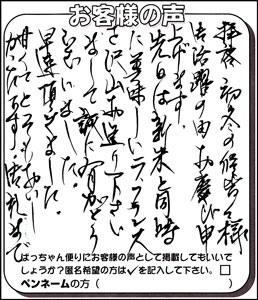 お客様の声
拝啓 初冬の候 皆々様
御活躍の由お慶び申
上げます。
先日は新米と同時
に美味しいラフランス
を沢山お送り下さい
まして誠に有がとう
ございました。
早速頂きました。
甘くてとてもおいし
ばっちゃん便りにお客様の声として掲載してもいいで
しょうか?匿名希望の方は✓を記入して下さい。□
ペンネームの方( )